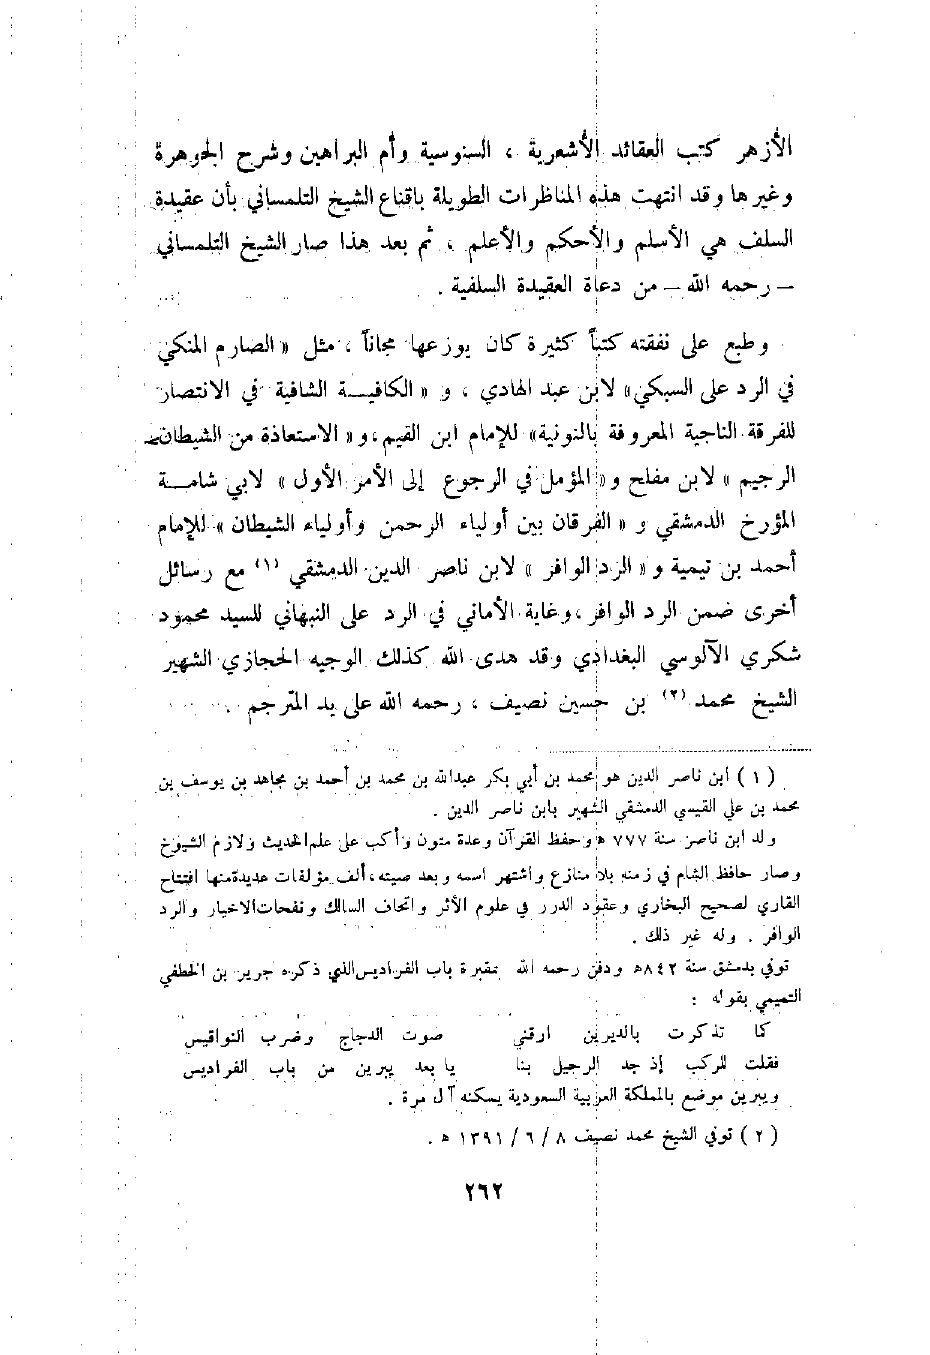 الأزهر كتب العقائد الأشعرية ، السنوسية وأم البراهين وشرح الجوهرة
وغيرها وقد انتهت هذه المناظرات الطويلة باقناع الشيخ التلمساني بأن عقيدة
السلف هي الأسلم والأحكم والأعلم ، ثم بعد هذا صار الشيخ التلمساني
– رحمه الله – من دعاة العقيدة السلفية .
وطبع على نفقته كتباً كثيرة كان يوزعها مجاناً ، مثل « الصارم المنكي
في الرد على السبكي » لابن عبد الهادي ، و « الكافيـــة الشافية في الانتصار
للفرقة الناجية المعروفة بالنونية » للإمام ابن القيم ، و « الاستعاذة من الشيطان
الرجيم » لابن مفلح و « المؤمل في الرجوع إلى الأمر الأول » لابي شامـــة
المؤرخ الدمشقي و « الفرقان بين أولياء الرحمن وأولياء الشيطان » للإمام
أحمد بن تيمية و « الرد الوافر » لابن ناصر الدين الدمشقي (١) مع رسائل
أخرى ضمن الرد الوافر ، وغاية الأماني في الرد على النبهاني للسيد محمود
شكري الآلوسي البغدادي وقد هدى الله كذلك الوجيه الحجازي الشهير
الشيخ محمد (٢) بن حسين نصيف ، رحمه الله على يد المترجم .
( ١ ) ابن ناصر الدين هو محمد بن أبي بكر عبدالله بن محمد بن أحمد بن مجاهد بن يوسف بن
محمد بن علي القيسي الدمشقي الشهير بابن ناصر الدين .
ولد ابن ناصر سنة ٧٧٧ ه وحفظ القرآن وعدة متون وأكب على علم الحديث ولازم الشيوخ
وصار حافظ الشام في زمنه بلا منازع واشتهر اسمه وبعد صيته ، ألف مؤلفات عديدة منها افتتاح
القاري لصحيح البخاري وعقود الدرر في علوم الأثر واتحاف السالك ونفحات الاخيار والرد
الوافر . وله غير ذلك .
توفي بدمشق سنة ٨٤٢ه ودفن رحمه الله بمقبرة باب الفراديس الذي ذكره جرير بن الخطفي
التميمي بقوله :
كما تذكرت بالديرين ارقني صوت الدجاج وضرب النواقيس
فقلت للركب إذ جد الرحيل بنا يا بعد يبرين من باب الفراديس
ويبرين موضع بالمملكة العربية السعودية يسكنه آل مرة .
( ٢ ) توفي الشيخ محمد نصيف ٨ / ٦ / ١٣٩١ ه .
٢٦٢